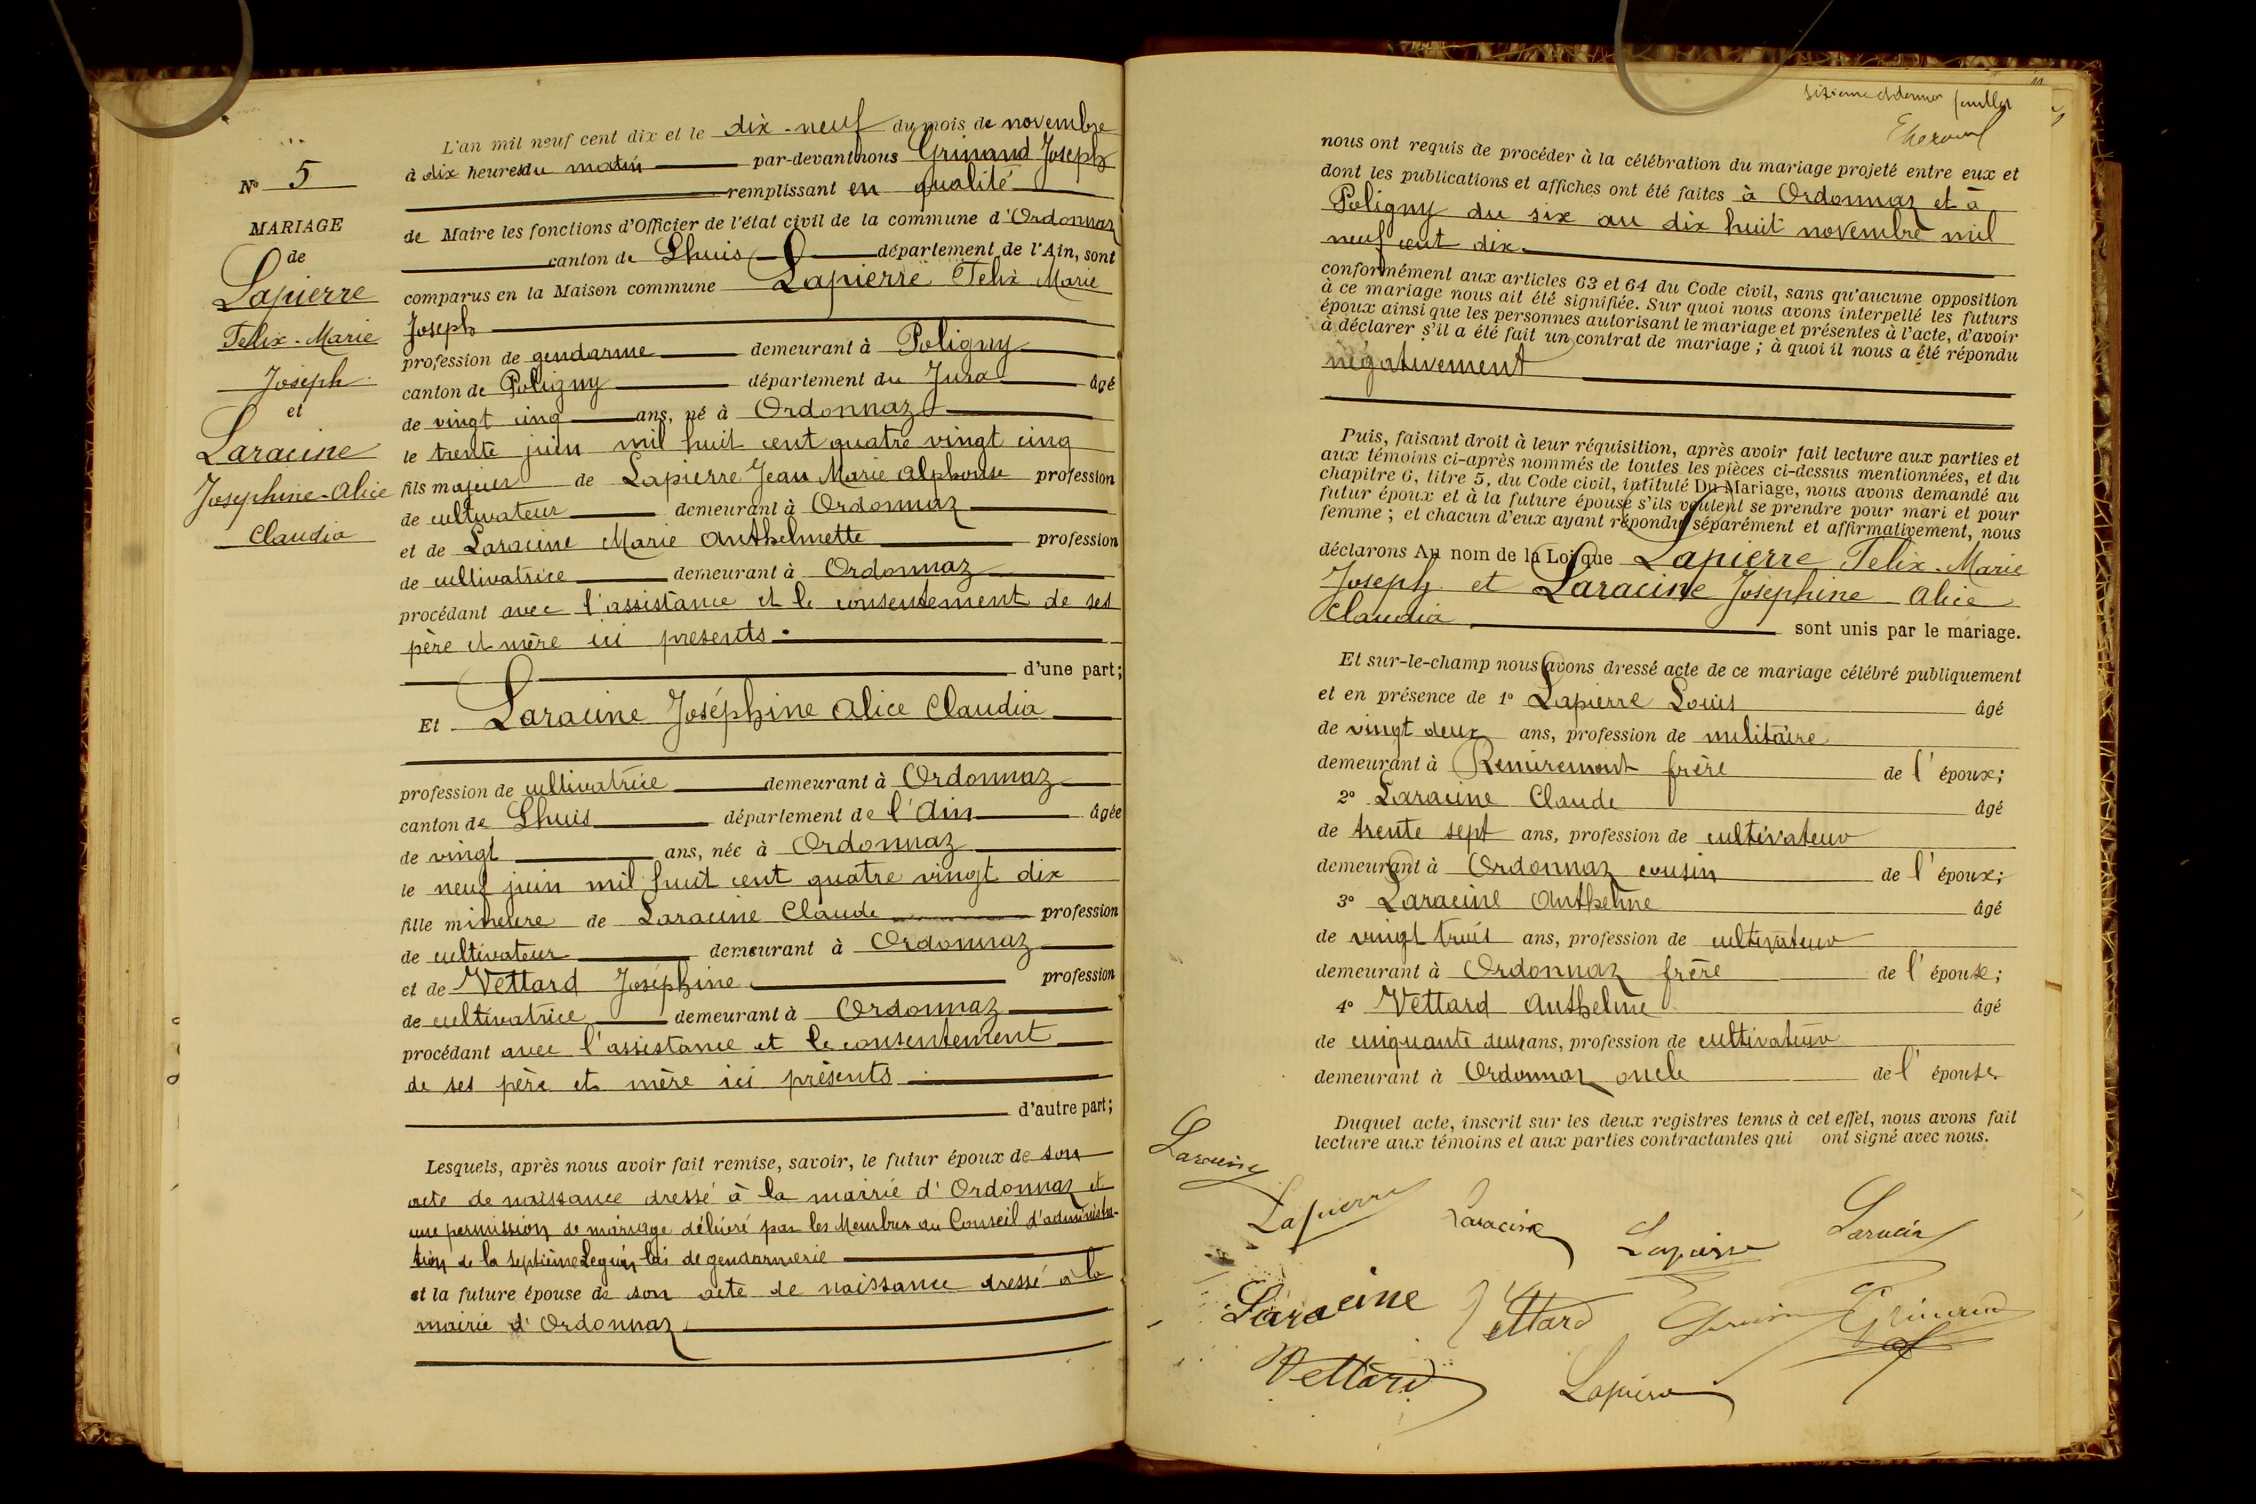 N° 5
MARIAGE
de
Lapierre
Felix-Marie
Joseph
et
Laracine
Joséphine-Alice
Claudia
L'an mil neuf cent dix et le dix-neuf du mois de novembre
à dix heures du matin par-devant nous Grinand Joseph
remplissant en qualité
de Maire les fonctions d'Officier de l'état civil de la commune d'Ordonnaz
canton de Lhuis département de l'Ain, sont
comparus en la Maison commune Lapierre Felix Marie
Joseph
profession de gendarme demeurant à Poligny
canton de Poligny département du Jura âgé
de vingt cinq ans, né à Ordonnaz
le trente juin mil huit cent quatre vingt cinq
fils majeur de Lapierre Jean Marie Alphonse profession
de cultivateur demeurant à Ordonnaz
et de Laracine Marie Anthelmette profession
de cultivatrice demeurant à Ordonnaz
procédant avec l'assistance et le consentement de ses
père et mère ici présents.
d'une part;
Et Laracine Joséphine Alice Claudia
profession de cultivatrice demeurant à Ordonnaz
canton de Lhuis département de l'Ain âgée
de vingt ans, née à Ordonnaz
le neuf juin mil huit cent quatre vingt dix
fille mineure de Laracine Claude profession
de cultivateur demeurant à Ordonnaz
et de Vettard Joséphine profession
de cultivatrice demeurant à Ordonnaz
procédant avec l'assistance et le consentement
de ses père et mère ici présents
d'autre part;
Lesquels, après nous avoir fait remise, savoir, le futur époux de son
acte de naissance dressé à la mairie d'Ordonnaz et
une permission de mariage délivré par les Membres du Conseil d'administra-
tion de la septième Legion bis de gendarmerie
et la future épouse de son acte de naissance dressé à la
mairie d'Ordonnaz
sixième et dernier feuillet
nous ont requis de procéder à la célébration du mariage projeté entre eux et
dont les publications et affiches ont été faites à Ordonnaz et à
Poligny du six au dix huit novembre mil
neuf cent dix
conformément aux articles 63 et 64 du Code civil, sans qu'aucune opposition
à ce mariage nous ait été signifiée. Sur quoi nous avons interpellé les futurs
époux ainsi que les personnes autorisant le mariage et présentes à l'acte, d'avoir
à déclarer s'il a été fait un contrat de mariage; à quoi il nous a été répondu
négativement
Puis, faisant droit à leur réquisition, après avoir fait lecture aux parties et
aux témoins ci-après nommés de toutes les pièces ci-dessus mentionnées, et du
chapitre 6, titre 5, du Code civil, intitulé Du Mariage, nous avons demandé au
futur époux et à la future épouse s'ils veulent se prendre pour mari et pour
femme; et chacun d'eux ayant répondu séparément et affirmativement, nous
déclarons Au nom de la Loi que Lapierre Felix-Marie
Joseph et Laracine Joséphine Alice
Claudia sont unis par le mariage.
Et sur-le-champ nous avons dressé acte de ce mariage célébré publiquement
et en présence de 1° Lapierre Louis âgé
de vingt deux ans, profession de militaire
demeurant à Remiremont frère de l'époux;
2° Laracine Claude âgé
de trente sept ans, profession de cultivateur
demeurant à Ordonnaz cousin de l'époux;
3° Laracine Anthelme âgé
de vingt trois ans, profession de cultivateur
demeurant à Ordonnaz frère de l'épouse;
4° Vettard Anthelme âgé
de cinquante deux ans, profession de cultivateur
demeurant à Ordonnaz oncle de l'épouse.
Duquel acte, inscrit sur les deux registres tenus à cet effet, nous avons fait
lecture aux témoins et aux parties contractantes qui ont signé avec nous.
Laracine
Lapierre Laracine Lapierre Laracine
Laracine Vettard Grinand
Vettard Lapierre